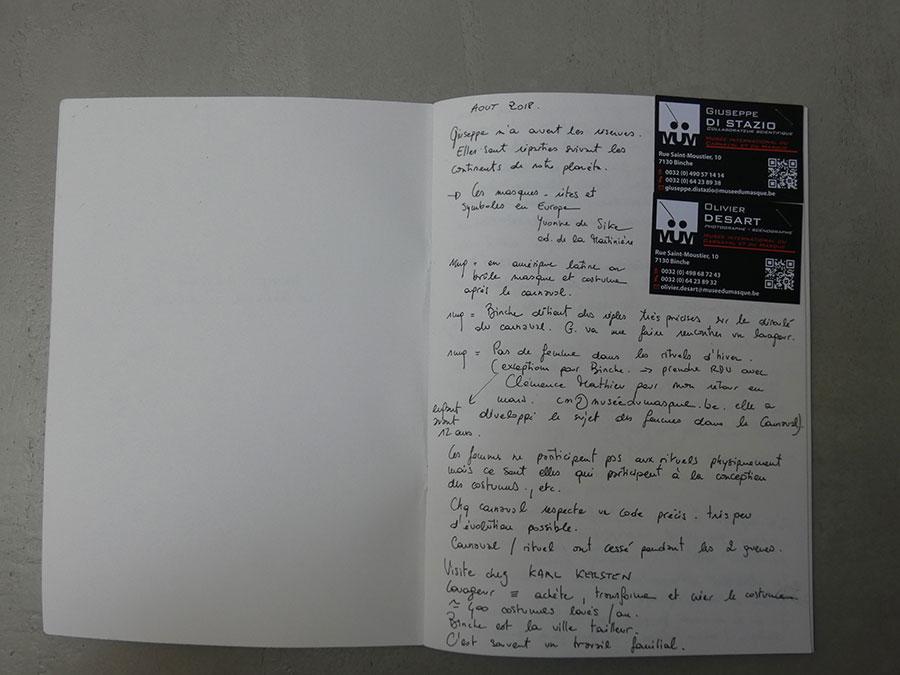 AOUT 2018.
Giuseppe m'a ouvert les réserves.
Elles sont réparties suivant les
continents de notre planète.
→ Les masques - rites et
symboles en Europe
Yvonne de Sike
ed. de la Martinière
= en amérique latine on
brûle masque et costume
après le carnaval.
= Binche détient des règles très précises sur le déroulé
du carnaval. G. va me faire rencontrer un louageur.
= Pas de femme dans les rituels d'hiver.
(exceptions pour Binche. → prendre RDV avec
Clémence Mathieu pour mon retour en
mars. cm@museedumasque.be. elle a
développé le sujet des femmes dans le Carnaval)
enfant
avant
12 ans.
Les femmes ne participent pas aux rituels physiquement
mais ce sont elles qui participent à la conception
des costumes, etc.
Chq carnaval respecte un code précis. très peu
d'évolution possible.
Carnaval / rituel ont cessé pendant les 2 guerres.
Visite chez KARL KERSTEN
Louageur = achète, transforme et créer le costume
≃ 400 costumes loués / an.
Binche est la ville tailleur.
C'est souvent un travail familial.
GIUSEPPE
DI STAZIO
COLLABORATEUR SCIENTIFIQUE
MUSÉE INTERNATIONAL DU
CARNAVAL ET DU MASQUE
MUM
Rue Saint-Moustier, 10
7130 Binche
0032 (0) 490 57 14 14
0032 (0) 64 23 89 38
giuseppe.distazio@museedumasque.be
OLIVIER
DESART
PHOTOGRAPHE - SCÉNOGRAPHE
MUSÉE INTERNATIONAL DU
CARNAVAL ET DU MASQUE
MUM
Rue Saint-Moustier, 10
7130 Binche
0032 (0) 498 68 72 43
0032 (0) 64 23 89 32
olivier.desart@museedumasque.be